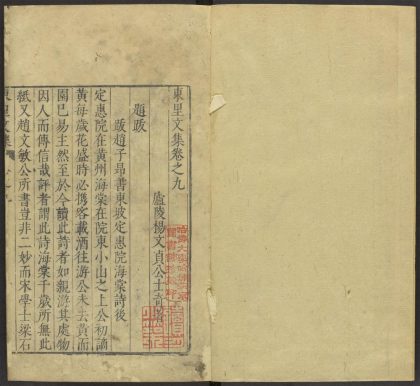 東里文集卷之九
廬陵楊文貞公士奇著
題跋
跋趙子昂書東坡定惠院海棠詩後
定惠院在黃州海棠在院東小山之上公初謫
黃每歲花盛時必攜客載酒往游公未去黃而
園已易主然至於今讀此詩者如親游其處物
因人而傳信哉評者謂此詩海棠千歲所無此
紙又趙文敏公所書豈非二妙而宋學士梁石
東里文集 卷之九